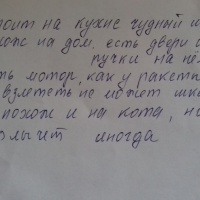 стоит на кухне чудный ш
похож на дом, есть двери
ручки на не
ть мотор, как у ракеты
взлететь не может шка
похож и на кота, но
рычит иногда